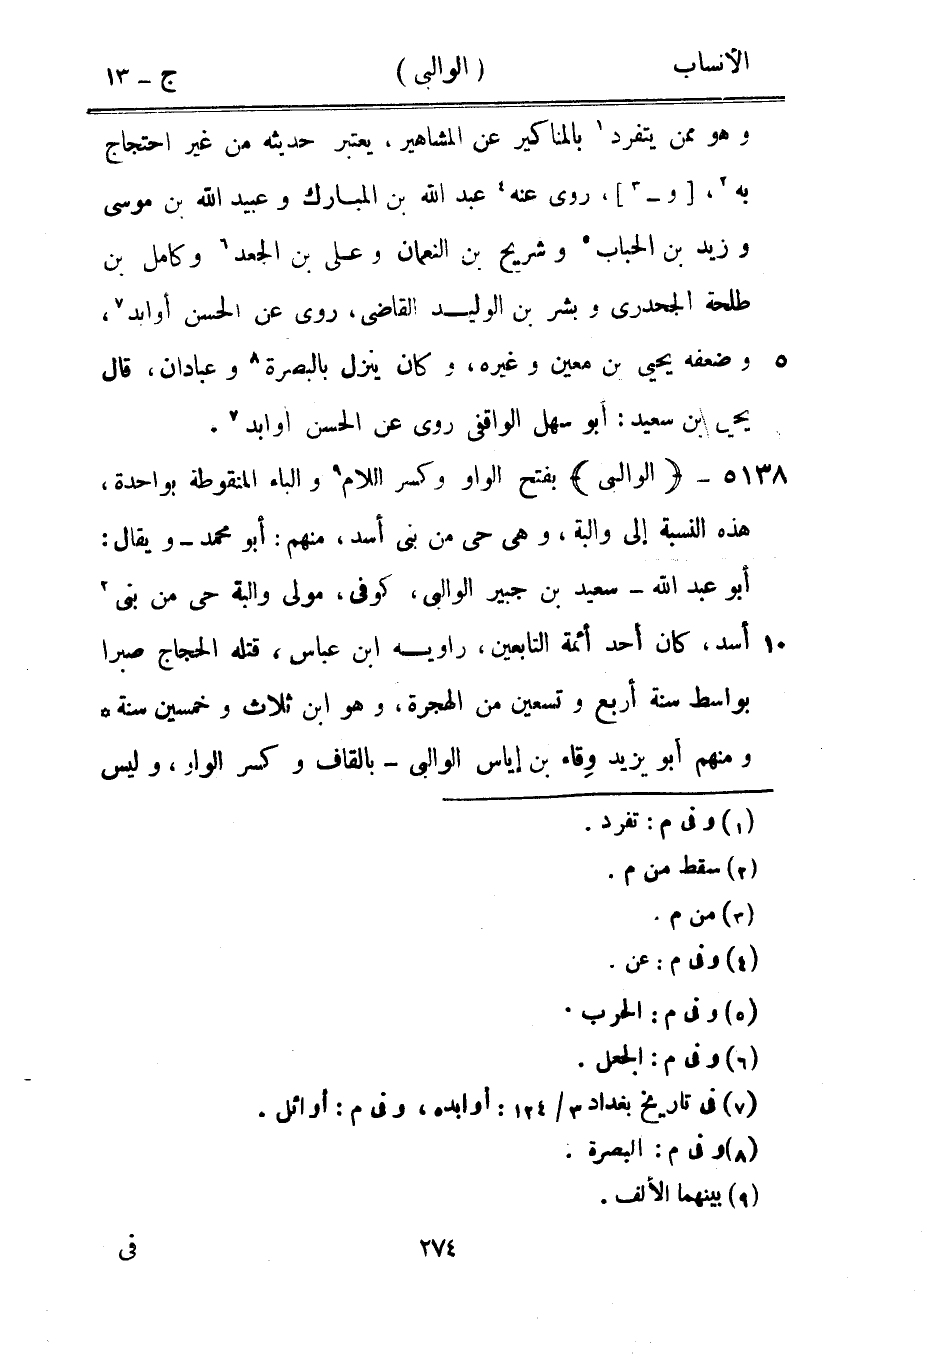 الأنساب ( الوالبى ) ج - ١٣
و هو ممن يتفرد ١ بالمناكير عن المشاهير ، يعتبر حديثه من غير احتجاج
به ٢ ، [ و - ٣ ] ، روى عنه ٤ عبد الله بن المبارك و عبيد الله بن موسى
و زيد بن الحباب ٥ و شريح بن النعمان و على بن الجعد ٦ و كامل بن
طلحة الجحدرى و بشر بن الوليد القاضى ، روى عن الحسن أوابد ٧ ،
٥ و ضعفه يحيى بن معين و غيره ، و كان ينزل بالبصرة ٨ و عبادان ، قال
يحيى بن سعيد : أبو سهل الواقفى روى عن الحسن اوابد ٧ .
٥١٣٨ - ﴿ الوالبى ﴾ بفتح الواو وكسر اللام ٩ و الباء المنقوطة بواحدة ،
هذه النسبة إلى والبة ، و هى حى من بنى أسد ، منهم : أبو محمد - و يقال :
أبو عبد الله - سعيد بن جبير الوالبى ، كوفى ، مولى والبة حى من بنى ٢
١٠ أسد ، كان أحد أئمة التابعين ، راويه ابن عباس ، قتله الحجاج صبرا
بواسط سنة أربع و تسعين من الهجرة ، و هو ابن ثلاث و خمسين سنة *
و منهم أبو يزيد وِقاء بن إياس الوالبى - بالقاف و كسر الواو ، و ليس
(١) و فى م : تفرد .
(٢) سقط من م .
(٣) من م .
(٤) و فى م : عن .
(٥) و فى م : الحرب .
(٦) و فى م : الجعل .
(٧) فى تاريخ بغداد ٣ / ١٢٤ : أوابده ، و فى م : أوائل .
(٨) و فى م : البصرة .
(٩) بينهما الألف .
٢٧٤ فى